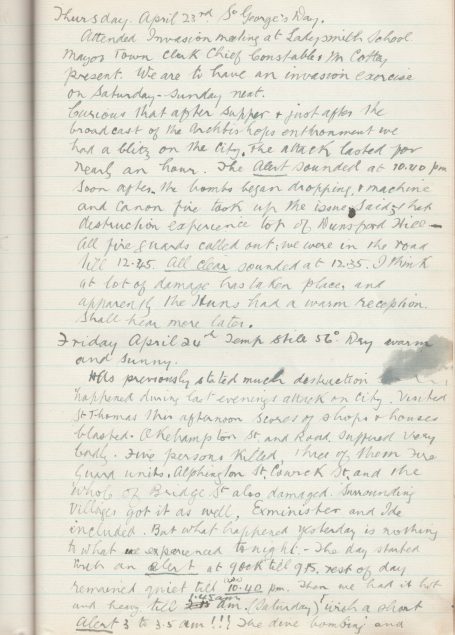 Thursday. April 23rd St George's Day.
Attended Invasion meeting at Ladysmith School
Mayor Town Clerk Chief Constable & Mr Cottey
present. We are to have an invasion exercise
on Saturday-Sunday next.
Curious that after supper & just after the
broadcast of the Archbishops enthronment we
had a blitz on the City. The attack lasted for
nearly an hour. The Alert sounded at 10.40 pm
Soon after the bombs began dropping, & machine
and Canon fire took up the issue. Said that
destruction experience top of Dunsford Hill -
All fire guards called out, we were in the road
till 12.45. All clear sounded at 12.35. I think
a lot of damage has taken place, and
apparently the Huns had a warm reception.
Shall hear more later.
Friday April 24th Temp still 56° Day warm
and sunny.
As previously stated much destruction
happened during last evenings attack on City. Visited
St Thomas this afternoon scores of shops & houses
blasted. Okehampton St and Road suffered very
badly. Five persons killed, three of them Fire
Guard units. Alphington St, Cowick St, and the
whole of Bridge St also damaged. Surrounding
Villages got it as well, Exminster and Ide
included. But what happened yesterday is nothing
to what we experienced to night. - The day started
with an alert at 9 ock till 9.15. rest of day
remained quiet till 10.40 pm. Then we had it hot
and heavy till 1.45am am. (Saturday) with a short
Alert 3 to 3.5 am!!! The dive bombing and